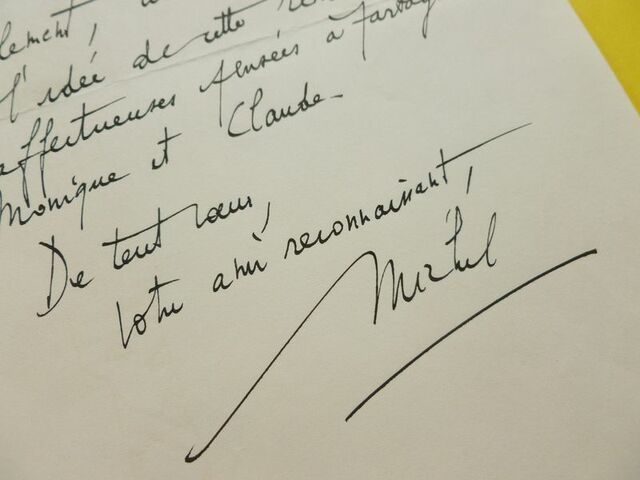 l'idée de cette
affectueuses pensées à partag
Monique et Claude.
De tout cœur,
Votre ami reconnaissant,
Michel